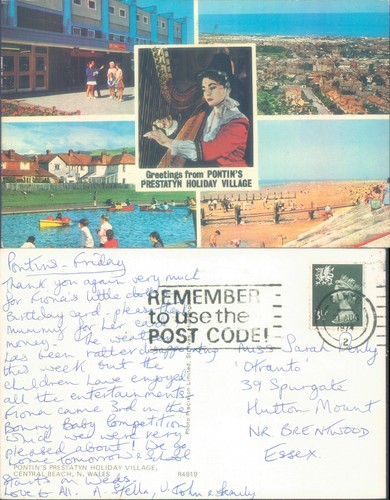 Greetings from PONTIN'S
PRESTATYN HOLIDAY VILLAGE
Pontins - Friday
Thank you again very much
for Fiona's little clothes
Birthday card, please thank
Mummy for her card
money. The weather
has been rather disappointing
this week but the
children have enjoyed
all the entertainments.
Fiona came 3rd in the
Bonny Baby Competition
which we were very
pleased about! We go
home tomorrow & school
starts on Weds.
Love to All. A. Stella, U. John & family
REMEMBER
to use the
POST CODE!
1974
Miss Sarah
'Otranto'
39 Spurgate
Hutton Mount
NR. BRENTWOOD
Essex.
PONTIN'S PRESTATYN HOLIDAY VILLAGE,
CENTRAL BEACH, N. WALES
R4819